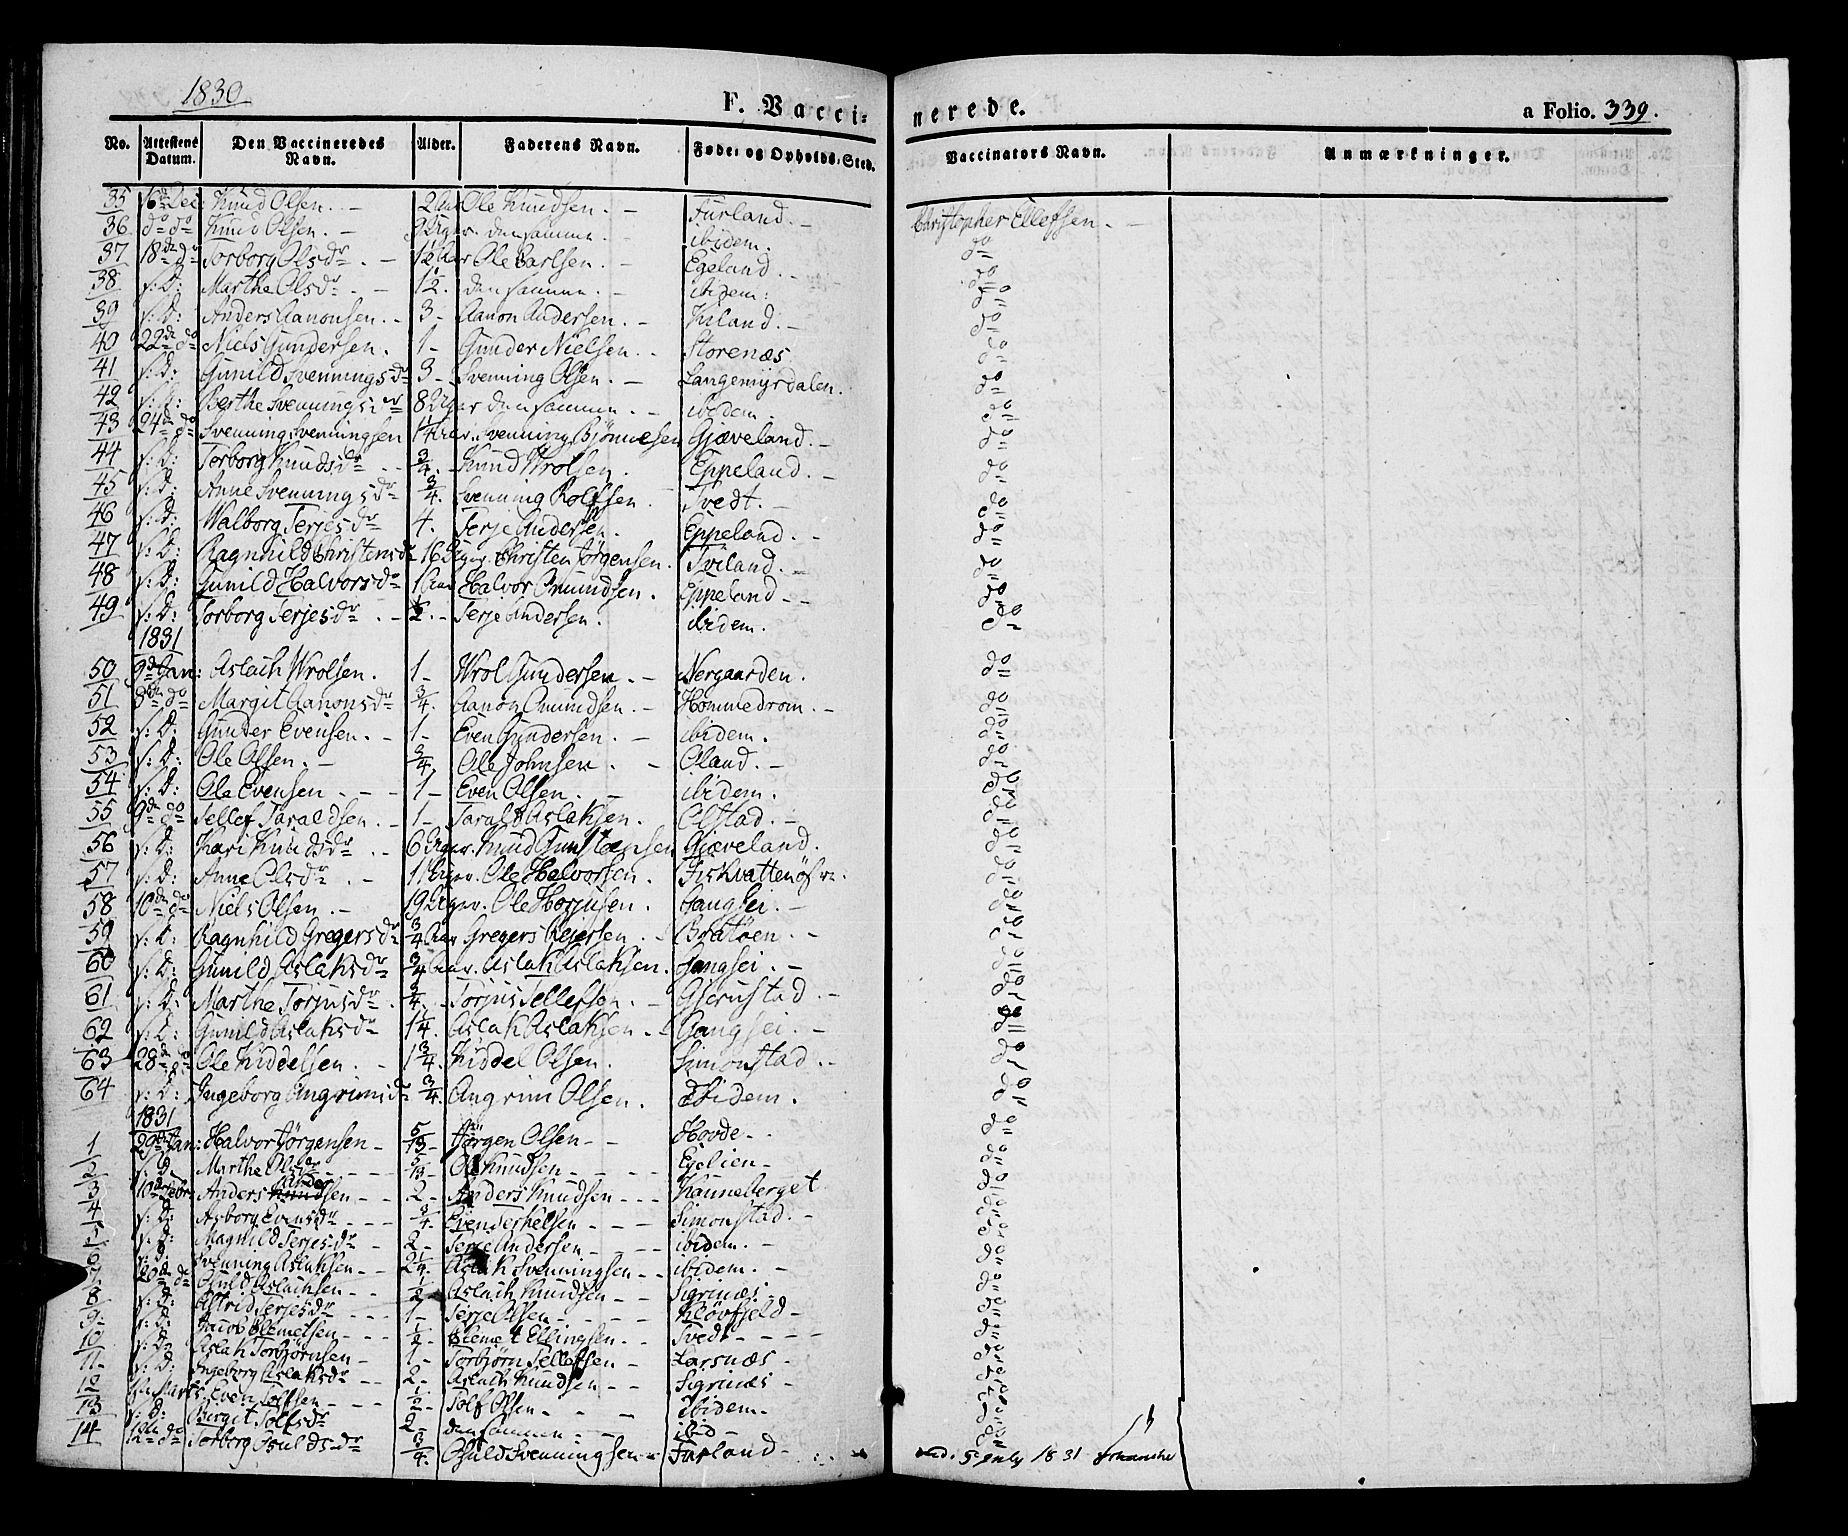 1830
F. Vaccinerede.
a Folio. 339.
No. Attestens Datum. Den Vaccineredes Navn. Alder. Faderens Navn. Føde- og Opholds-Sted. Vaccinators Navn. Anmærkninger.
35 16de Dec: Knud Olsen. 2 Aar Ole Knudsen. Furland. Christopher Ellefsen.
36 do do Knud Olsen. 9 Uger den samme. ibidem. do
37 18de do Torborg Olsdr. 1½ Aar Ole Carlsen. Egeland. do
38 s: D: Marthe Olsdr. 1½. den samme. ibidem: do
39 s: D: Anders Aanonsen. 3 Aanon Andersen. do
40 22de do Niels Gundersen. 1 Gunder Nielsen. Storenæs do
41 s: D: Gunild Svenningsdr 3 Svenning Olsen. Langemyrdalen. do
42 s: D: Berthe Svenningsdr 8 Uger den samme. ibidem. do
43 24de do Svenning Svenningsen 1¼ Aar. Svenning Bjönnesen Gjæveland. do
44 s: D: Torborg Knudsdr ¾. Knud Wrolsen. Eppeland. do
45 s: D: Anne Svenningsdr ¾. Svenning Rolfsen Tvedt. do
46 s: D: Walborg Terjesdr 4. Terje Andersen. Eppeland. do
47 s: D: Ragnhild Christensdr 16 Uger. Christen Jörgensen. Tviland. do
48 s: D: Gunild Halvorsdr 1 Aar Halvor Omundsen. Eppeland do
49 s: D: Torborg Terjesdr. ½. Terje Andersen. ibidem. do
1831
50 9de Jan: Aslach Wrolsen. 1 Wrol Gundersen. Nergaarden. do
51 8de do Margit Aanonsdr ¾. Aanon Omundsen. Hommedrom. do
52 s: D: Gunder Evensen. 1 Even Gundersen. ibidem. do
53 s: D: Ole Olsen. ¾ Ole Johnsen. Oland. do
54 s: D: Ole Evensen 1 Even Olsen. ibidem. do
55 9de do Tellef Taraldsen. 1 Tarald Aslaksen. Olstad. do
56 s: D: Kari Knudsdr. 6 Uger. Knud Gunstensen Gjæveland. do
57 s: D: Anne Olsdr. 11 Uger. Ole Halvorsen. do
58 10de do Niels Olsen. 19 Uger. Ole Horjusen. Gangsei. do
59 s: D: Ragnhild Gregersdr ¾ Aar Gregers Reiersen. Bratöen. do
60 s: D: Gunild Aslaksdr ¾ Aar. Aslak Aslaksen. Gangsei. do
61 s: D: Marthe Torjusdr. ¾. Torjus Tellefsen. Gjerustad do
62 s: D: Gunild Aslaksdr 1¼. Aslak Aslaksen. Gangsei. do
63 28de do Ole Kiddelsen. 1¾. Kiddel Olsen. Simonstad. do
64 s: D: Ingeborg Angrimsdr ¾. Angrim Olsen. Ibidem. do
1831
1 29de Jan: Halvor Jörgensen Jörgen Olsen Hovde. do
2 s: D. Marthe Olsdr Ole Knudsen Egelien do
3 10de Febr Anders Andersen 2 Anders Knudsen Kauneberget do
4 s: D: Asborg Evensdr ¾ Even Terkelsen Simonstad. do
5 s: D: Magnild Terjesdr 2 Terje Andersen ibidem. do
6 s: D: Svenning Aslaksen 2¼ Aslak Svenningsen ibidem. do
7 20de do Ouild Aslachsen ½ Aslach Knudsen Sigrinæs do
8 s: D: Astrid Terjesdr 1 Terje Olsen Klövfjeld do
9 s: D: Jacob Clemetsen ½ Clemet Ellingsen Tvedt do
10 s: D: Aslak Torbjörnsen 1 Torbjörn Tellefsen Larsnæs do
11 s: D: Ingeborg Aslaksdr 2 Aslach Knudsen Sigrinæs do
12 Marts Even Tolfsen ½ Tolf Olsen ibidem. do
13 s: D: Birgit Tolfsdr 2 den samme ibid do
14 12te do Torborg Ouldsdr ¾ Ouild Svenningsen Furland do
5 July 1831